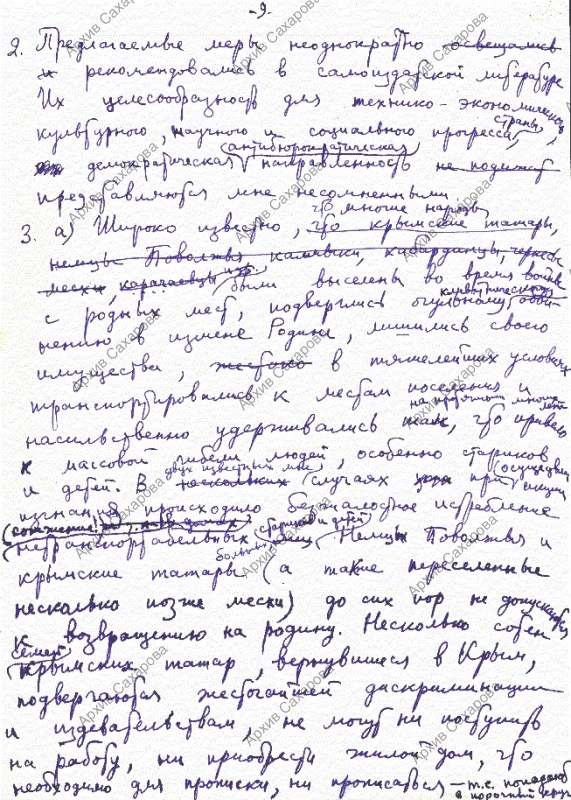 - 9 -
2. Предлагаемые меры неоднократно освещались
и рекомендовались в самоиздатской литературе
Их целесообразность для технико-экономического,
культурного, научного и социального прогресса страны,
антибюрократическая
демократическая направленность не подлежат
представляются мне несомненными
что многие народы,
3. а) Широко известно, что крымские татары,
немцы Поволжья калмыки, кабардинцы, черкесы
месхи, карачаевцы и др. были выселены во время войны
с родных мест, подверглись огульному обви-
нению в измене Родине, лишились своего
имущества, жестоко в тяжелейших условиях
транспортировались к местам поселения и
на протяжении многих лет
насильственно удерживались там, что привело
к массовой гибели людей, особенно стариков
двух известных мне
и детей. В нескольких случаях при осуществлении акции
изгнания происходило безжалостное истребление
(сожжение в домах) стариков и детей
нетранспортабельных больных лиц Немцы Поволжья и
крымские татары (а также переселенные
несколько позже месхи) до сих пор не допускаются
к возвращению на родину. Несколько сотен
семей
крымских татар, вернувшиеся в Крым,
подвергаются жесточайшей дискриминации
и издевательствам, не могут ни поступить
на работу, ни приобрести жилой дом, что
необходимо для прописки, ни прописаться — т.е. попадают
в порочный круг
Архив Сахарова